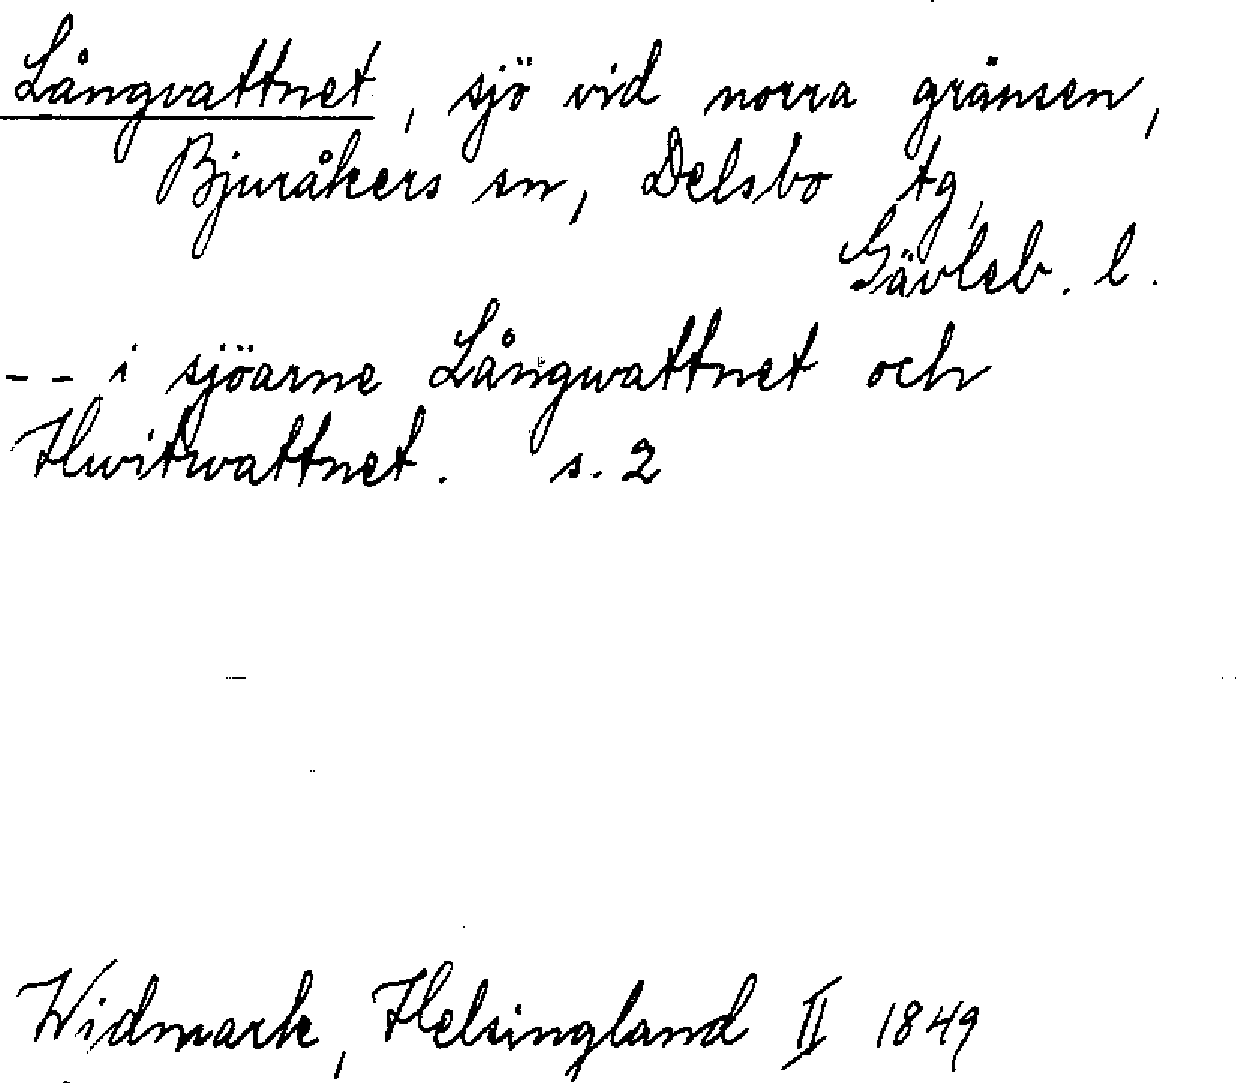 Långvattnet, sjö vid norra gränsen,
Bjuråkers sn, Delsbo tg,
Gävleb. l.
-- i sjöarne Långwattnet och
Hwitwattnet. s. 2
Widmark, Helsingland II 1849